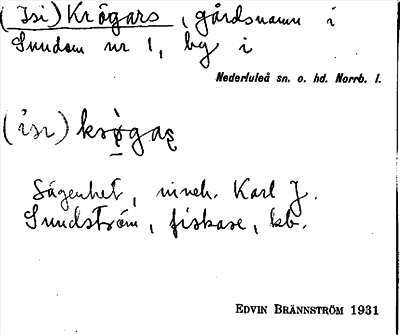 (Isi) Krögars, gårdsnamn i
Sundom nr 1, by i
Nederluleå sn. o. hd. Norrb. l.
Sågenhet, inneh. Karl J.
Sundström, fiskare, kb.
EDVIN BRÄNNSTRÖM 1931